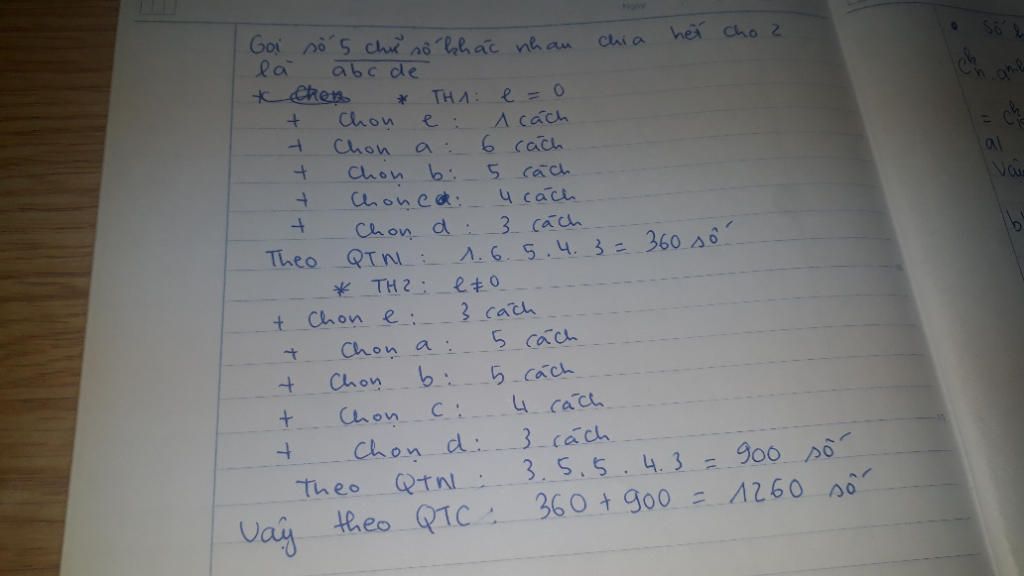 Gọi số 5 chữ số khác nhau chia hết cho 2
là abcde
* * TH1: e = 0
+ Chọn e: 1 cách
+ Chọn a: 6 cách
+ Chọn b: 5 cách
+ Chọn c: 4 cách
+ Chọn d: 3 cách
Theo QTN: 1.6.5.4.3 = 360 số
* TH2: e ≠ 0
+ Chọn e: 3 cách
+ Chọn a: 5 cách
+ Chọn b: 5 cách
+ Chọn c: 4 cách
+ Chọn d: 3 cách
Theo QTN: 3.5.5.4.3 = 900 số
Vậy theo QTC: 360 + 900 = 1260 số